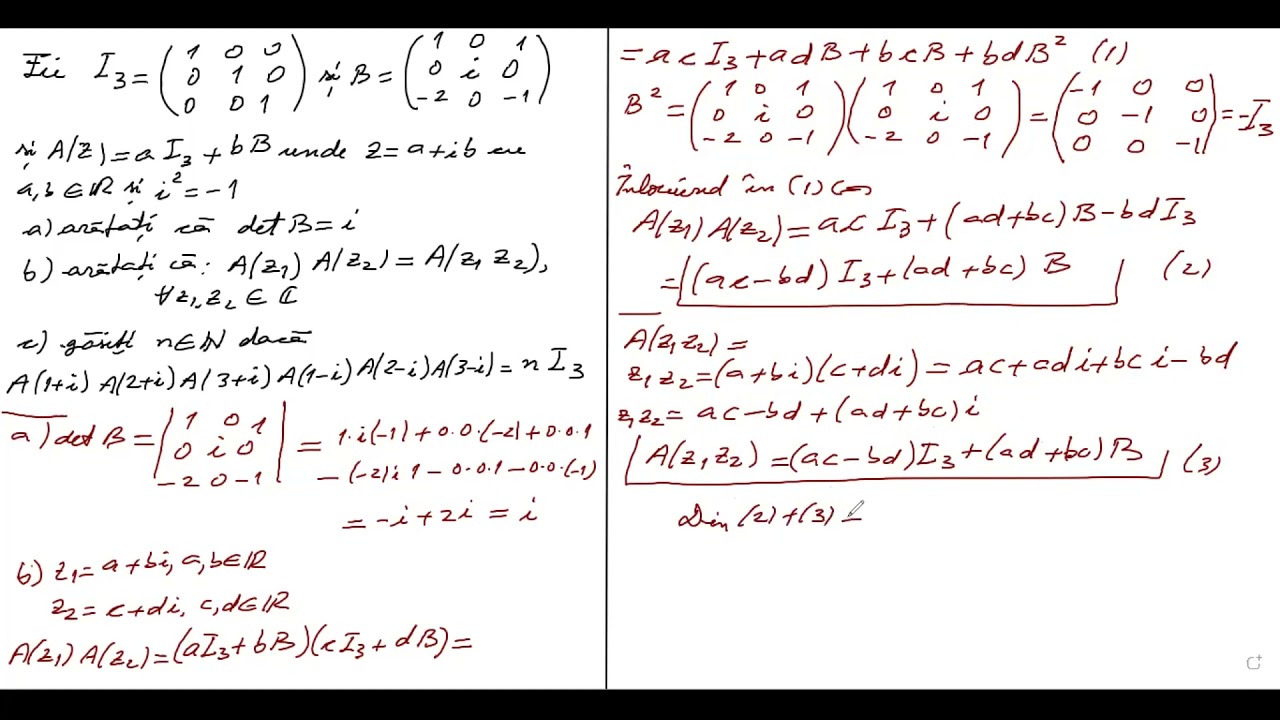 Fie I₃ = (1 0 0 / 0 1 0 / 0 0 1) și B = (1 0 1 / 0 i 0 / -2 0 -1)
și A(z) = a I₃ + b B unde z = a + ib cu
a, b ∈ ℝ și i² = -1
a) arătați că det B = i
b) arătați că: A(z₁) A(z₂) = A(z₁ z₂),
∀ z₁, z₂ ∈ ℂ
c) găsiți n ∈ ℕ dacă
A(1+i) A(2+i) A(3+i) A(1-i) A(2-i) A(3-i) = n I₃
a) det B = |1 0 1 / 0 i 0 / -2 0 -1| = 1·i(-1) + 0·0·(-2) + 0·0·1
- (-2)i 1 - 0·0·1 - 0·0·(-1)
= -i + 2i = i
b) z₁ = a + bi, a, b ∈ ℝ
z₂ = c + di, c, d ∈ ℝ
A(z₁) A(z₂) = (a I₃ + b B)(c I₃ + d B) =
= ac I₃ + ad B + bc B + bd B² (1)
B² = (1 0 1 / 0 i 0 / -2 0 -1)(1 0 1 / 0 i 0 / -2 0 -1) = (-1 0 0 / 0 -1 0 / 0 0 -1) = -I₃
Înlocuind în (1) ⇔
A(z₁) A(z₂) = ac I₃ + (ad + bc) B - bd I₃
= (ac - bd) I₃ + (ad + bc) B (2)
A(z₁ z₂) =
z₁ z₂ = (a + bi)(c + di) = ac + adi + bci - bd
z₁ z₂ = ac - bd + (ad + bc) i
A(z₁ z₂) = (ac - bd) I₃ + (ad + bc) B (3)
Din (2) + (3) =